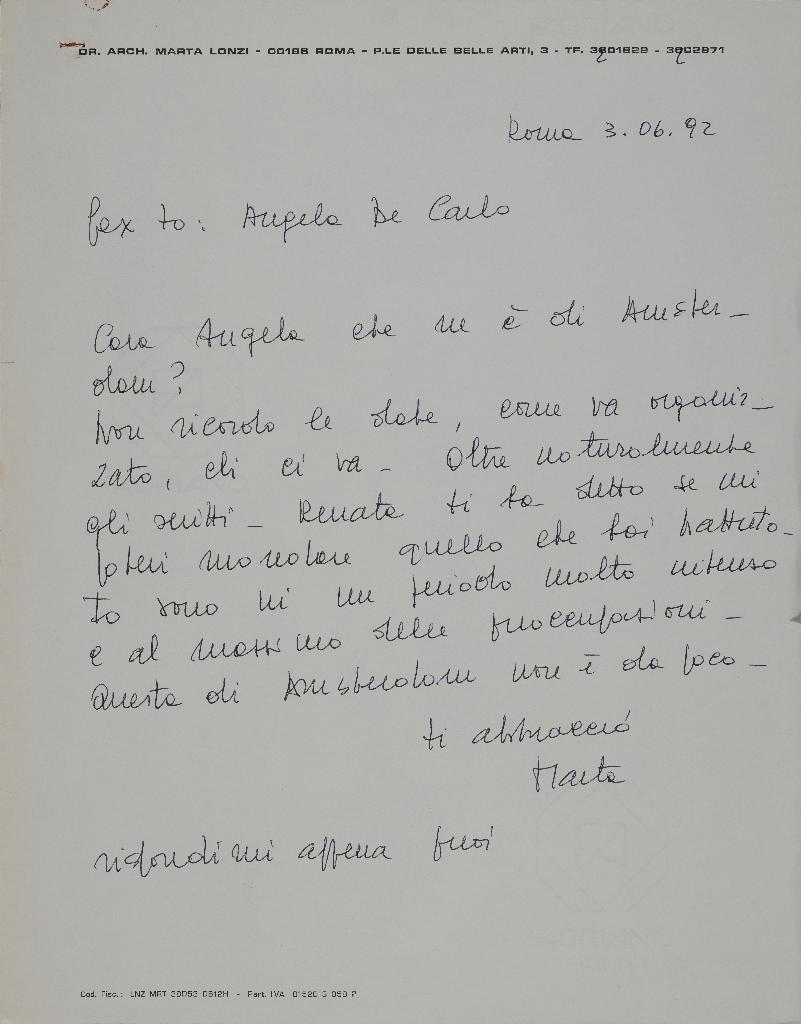 DR. ARCH. MARTA LONZI - 00196 ROMA - P.LE DELLE BELLE ARTI, 3 - TF. 3201829 - 3202971
Roma 3. 06. 92
fax to: Angela De Carlo
Cara Angela che ne è di Amster-
dam?
Non ricordo le date, come va organiz-
zato, chi ci va - Oltre naturalmente
gli scritti - Renata ti ha detto se mi
poteri mandare quello che hai battuto -
Io sono in un periodo molto intenso
e al massimo delle preoccupazioni -
Questa di Amsterdam non è da poco -
ti abbraccio
Marta
rispondimi appena puoi
Cod. Fisc.: LNZ MRT 38D53 D612H - Part. IVA